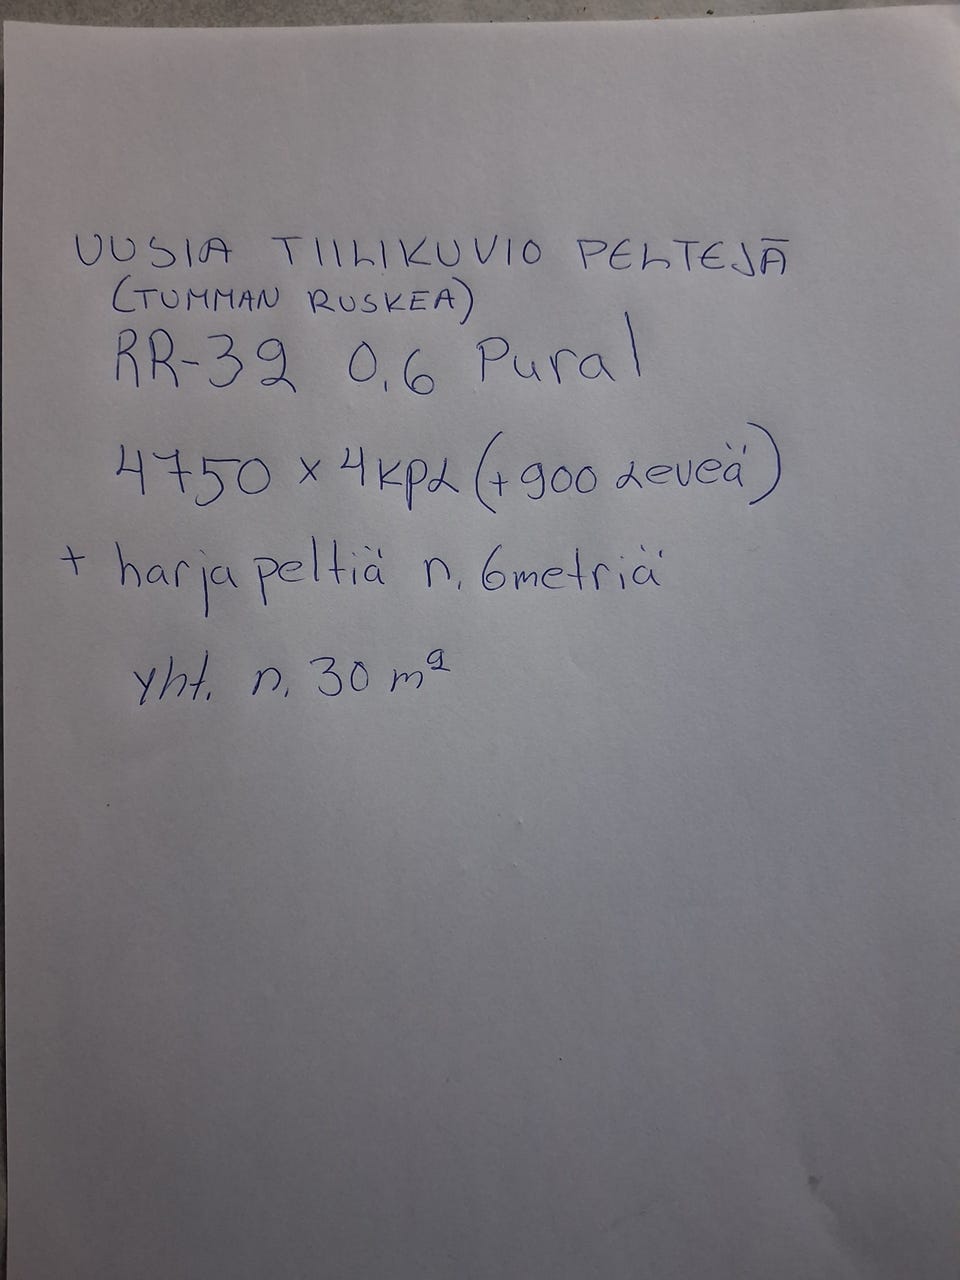 UUSIA TIILIKUVIO PELTEJÄ
(TUMMAN RUSKEA)
RR-32 0,6 Pural
4750 x 4KPL (+900 Leveä)
+ harjapeltiä n. 6metriä
yht. n. 30 m²